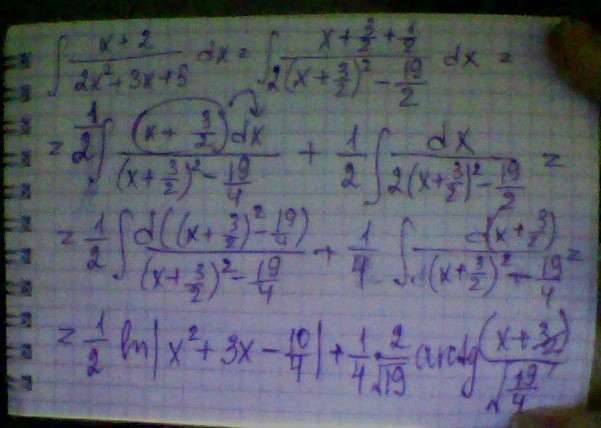 ∫ (x + 2)/(2x² + 3x + 5) dx = ∫ (x + 3/2 + 1/2)/(2(x + 3/2)² − 19/2) dx =
= 1/2 ∫ (x + 3/2) dx/((x + 3/2)² − 19/4) + 1/2 ∫ dx/(2(x + 3/2)² − 19/2) =
= 1/2 ∫ d((x + 3/2)² − 19/4)/((x + 3/2)² − 19/4) + 1/4 ∫ d(x + 3/2)/((x + 3/2)² − 19/4) =
= 1/2 ln|x² + 3x − 10/4| + 1/4 · 2/√19 arctg (x + 3/2)/√(19/4)